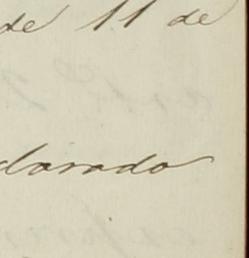 de 11 de
darado